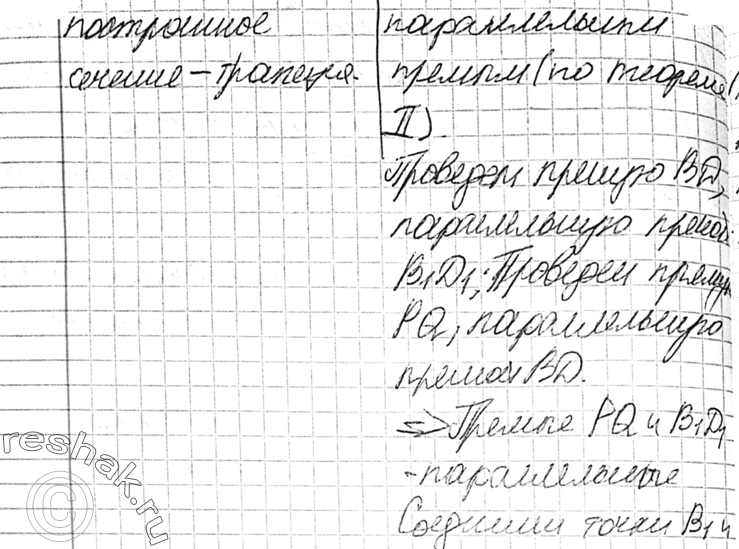 построенное
сечение – трапеция.
параллельным
прямым (по теореме
II).
Проведем прямую BD,
параллельную прямой
B₁D₁; Проведем прямую
PQ, параллельную
прямой BD.
=> Прямые PQ и B₁D₁
- параллельные
Соединим точки B₁ и
© reshak.ru